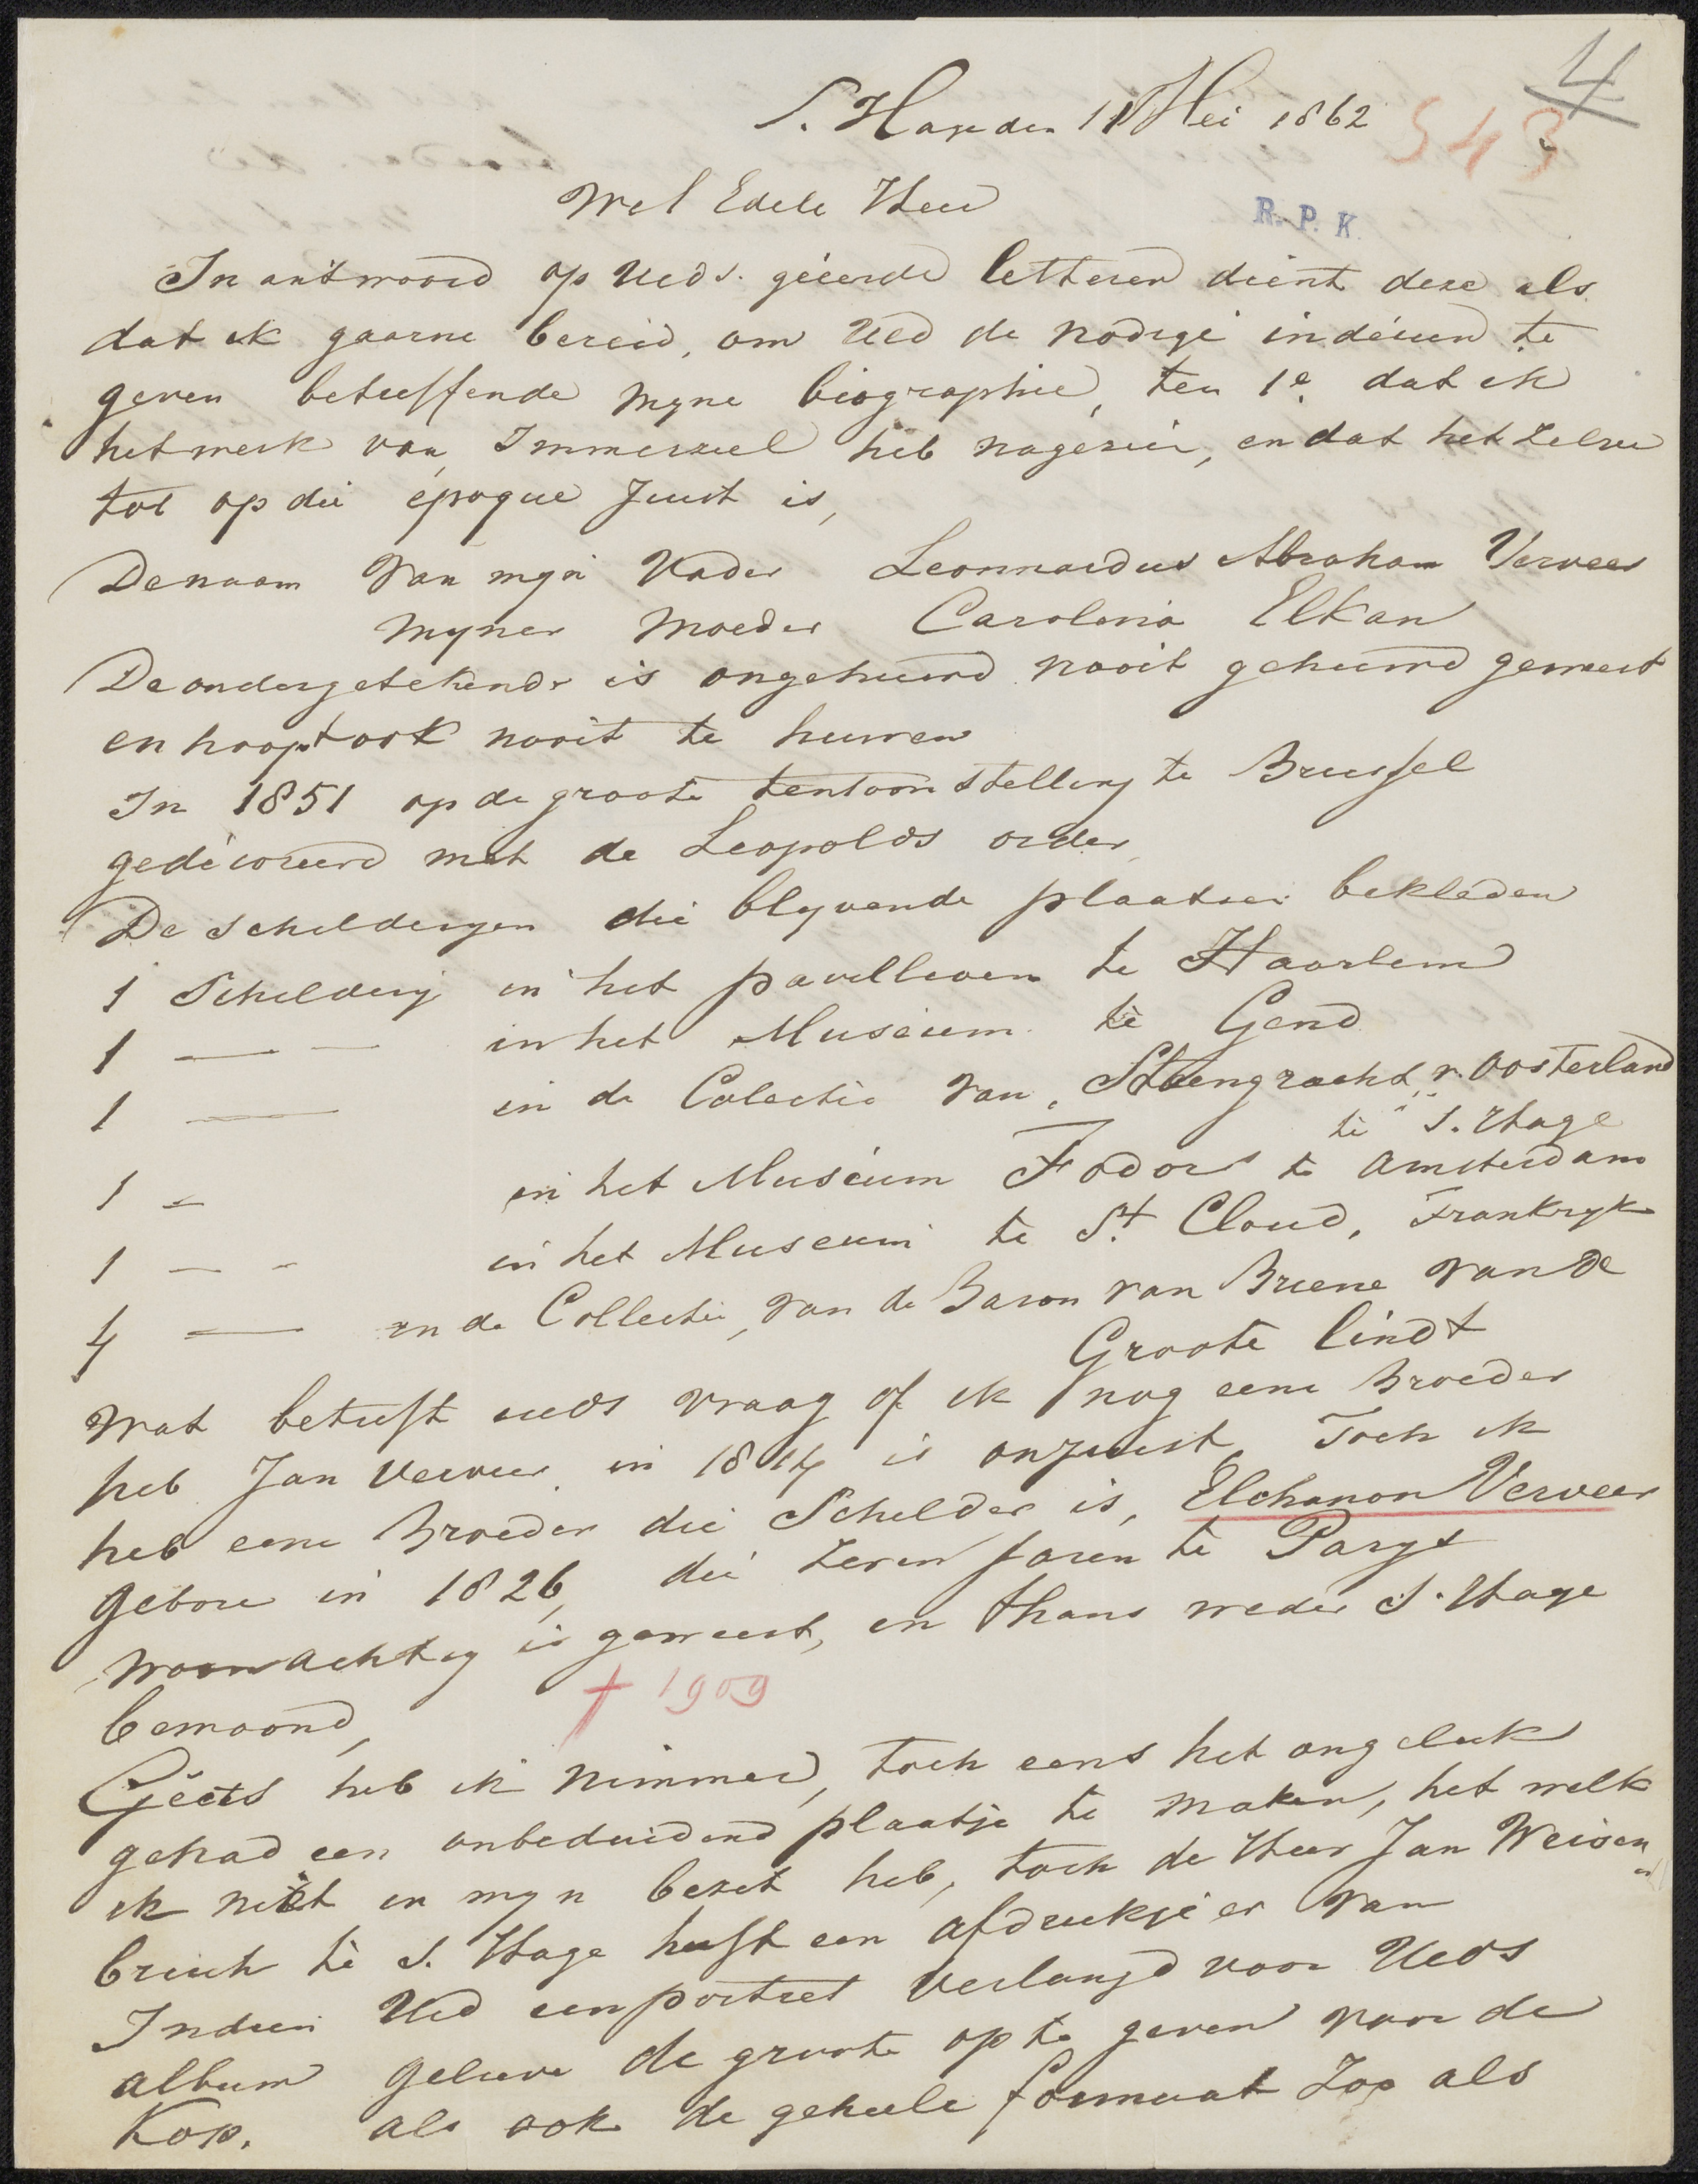 4
S. Hage den 11 Mei 1862
543
Wel Edele Heer
R. P. K.
In antwoord op UEds. geëerde letteren dient deze als
dat ik gaarne bereid, om UEd de nodige indéeen te
geven betreffende myne biographie, ten 1e dat ik
het werk van Immerzeel heb nagezien, en dat het zelve
tot op die epoque juist is,
De naam van myn Vader Leonnardus Abraham Verveer
myner Moeder Carolina Elkan
De ondergetekende is ongehuwd nooit gehuwd geweest
en hoopt ook nooit te huwen
In 1851 op de groote tentoonstelling te Brussel
gedécoreerd met de Leopolds order
De schilderyen die blyvende plaatsen bekleden
1 Schildery in het pavilloen te Haarlem
1 — — in het Muséum te Gend
1 — in de Colectie van Steengracht v. Oosterland
te S. Hage
1 – in het Muséum Fodor te Amsterdam
1 — - in het Museum te St. Cloud, Frankryk
4 — in de Collectie, van de Baron van Briene van de
Groote lindt
Wat betreft ueds vraag of ik nog eene Broeder
heb Jan Verveer in 1814 is onjuist, Toch ik
heb eene Broeder die Schilder is, Elchanon Verveer
gebore in 1826, die zeven jaren te Parys
woonachtig is geweest, en thans weder S. Hage
bewoond,
† 1909
Géëts heb ik nimmer, toch eens het ongeluk
gehad een onbeduidend plaatje te maken, het welk
ik niet in myn bezet heb, toch de Heer Jan Weisen
bruch te S. Hage heeft een afdrukje er van
Indien UEd een portret verlangd voor UEds
album gelieve de groote op te geven van de
Kop, als ook de geheele formaat Zoo als